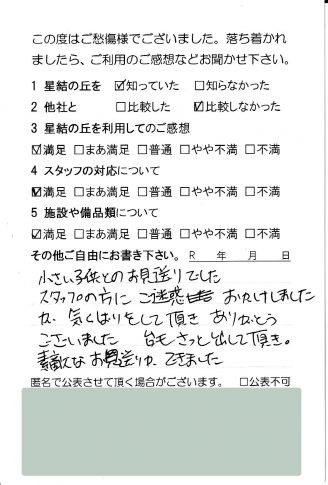 この度はご愁傷様でございました。落ち着かれ
ましたら、ご利用のご感想などお聞かせ下さい。
1 星結の丘を ☑知っていた □知らなかった
2 他社と □比較した ☑比較しなかった
3 星結の丘を利用してのご感想
☑満足 □まあ満足 □普通 □やや不満 □不満
4 スタッフの対応について
☑満足 □まあ満足 □普通 □やや不満 □不満
5 施設や備品類について
☑満足 □まあ満足 □普通 □やや不満 □不満
その他ご自由にお書き下さい。 R 年 月 日
小さい子供とのお見送りでした
スタッフの方に ご迷惑 おかけしました
が、気くばりをして頂き ありがとう
ございました 台も さっと出して頂き。
素敵な お見送りが できました
匿名で公表させて頂く場合がございます。 □公表不可